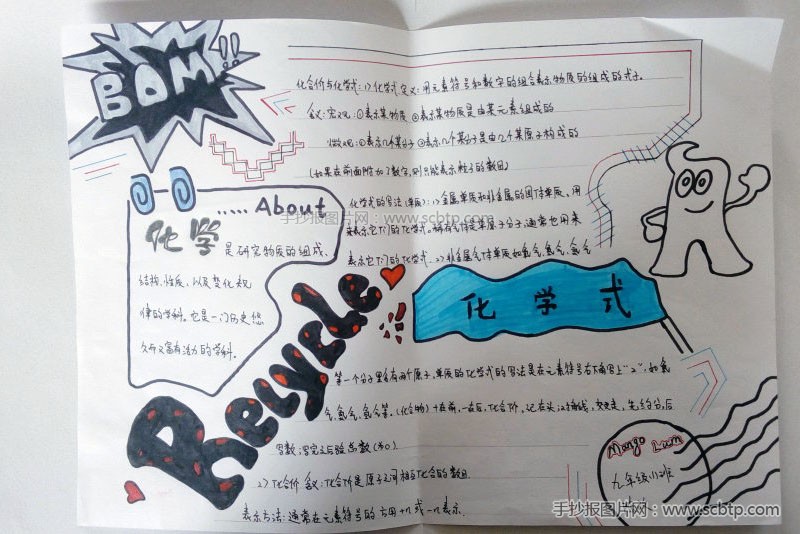 BOM!!
化合价与化学式:1)化学式定义:用元素符号和数字的组合表示物质的组成的式子。
含义:宏观:①表示某物质 ②表示某物质是由某元素组成的
微观:①表示几个某分子 ②表示几个某分子是由几个某原子构成的
(如果在前面附加了数字,则只能表示粒子的数目)
化学式的写法(单质):1)金属单质和非金属的固体单质,用
来表示它们的化学式。稀有气体是单原子分子,通常也用来
表示它们的化学式。2)非金属气体单质如氧气,氢气,氮气
..... About
手抄报图片网:www.scbtp.com
化学 是研究物质的组成、
结构、性质、以及变化规
律的学科。它是一门历史悠
久而又富有活力的学科。
Recycle
化学式
等一个分子里含有两个原子,单质的化学式的写法是在元素符号右下角写上"2",如氧
气,氢气,氮气等。(化合物)十在前,一在后,化合价,记在头,交叉走,先约分,后
写数;写完之后验总数(为0)
2)化合价 含义:化合价是原子之间相互化合的数目.
表示方法:通常在元素符号的方用+n或-n表示.
Mango Lum
九年级
手抄报图片网:www.scbtp.com